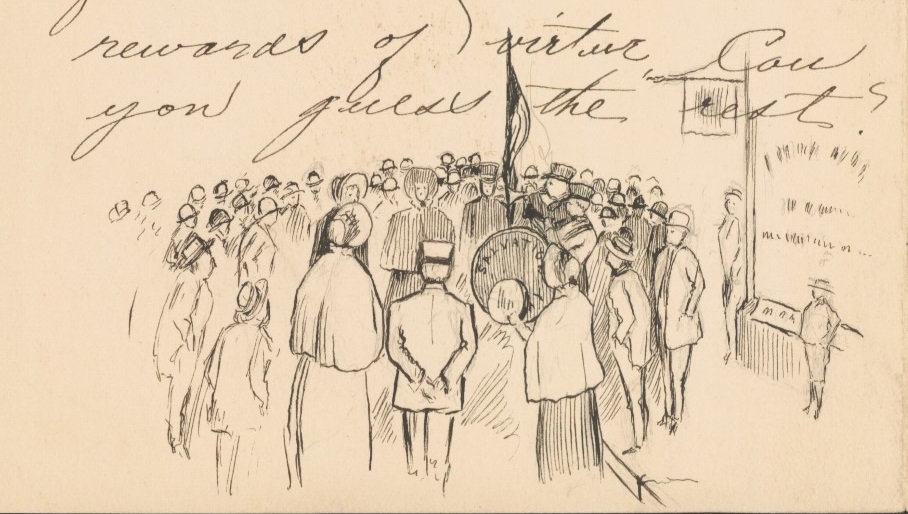 rewards of virtue Can
you guess the rest?